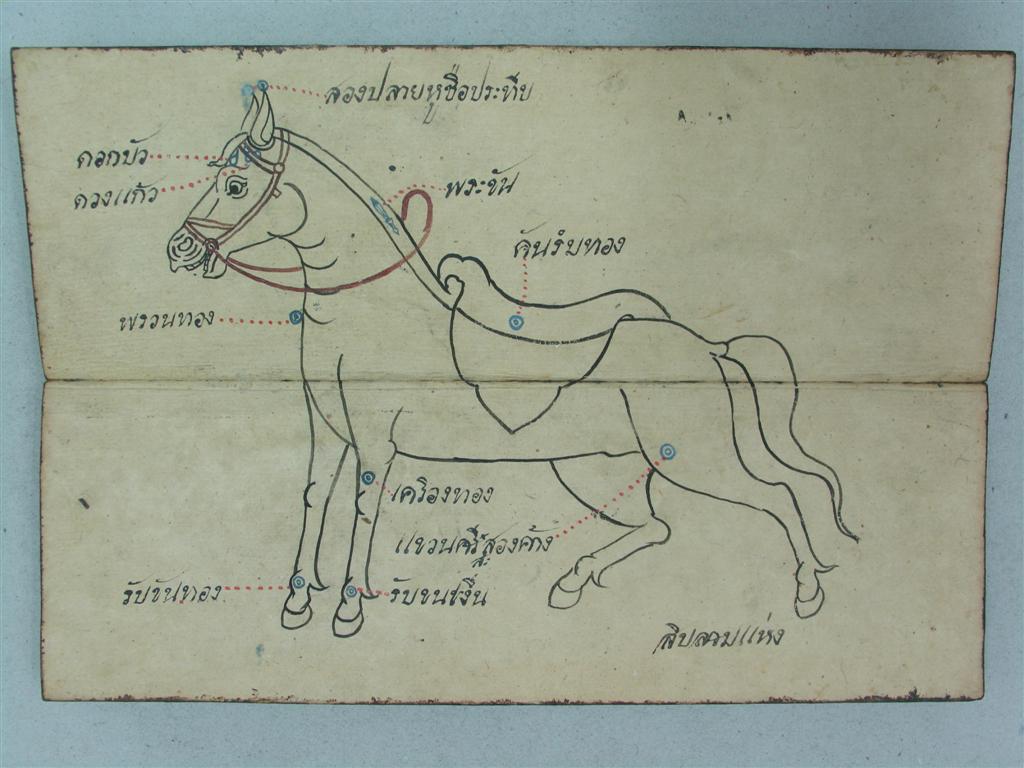 สองปลายหูชื่อประทีป
ดอกบัว
ดวงแก้ว
พระขัน
คันรับทอง
พรวนทอง
เครืองทอง
แขวนศรีสองค้าง
รับขันทอง
รับขนเงิน
สิบสามแห่ง